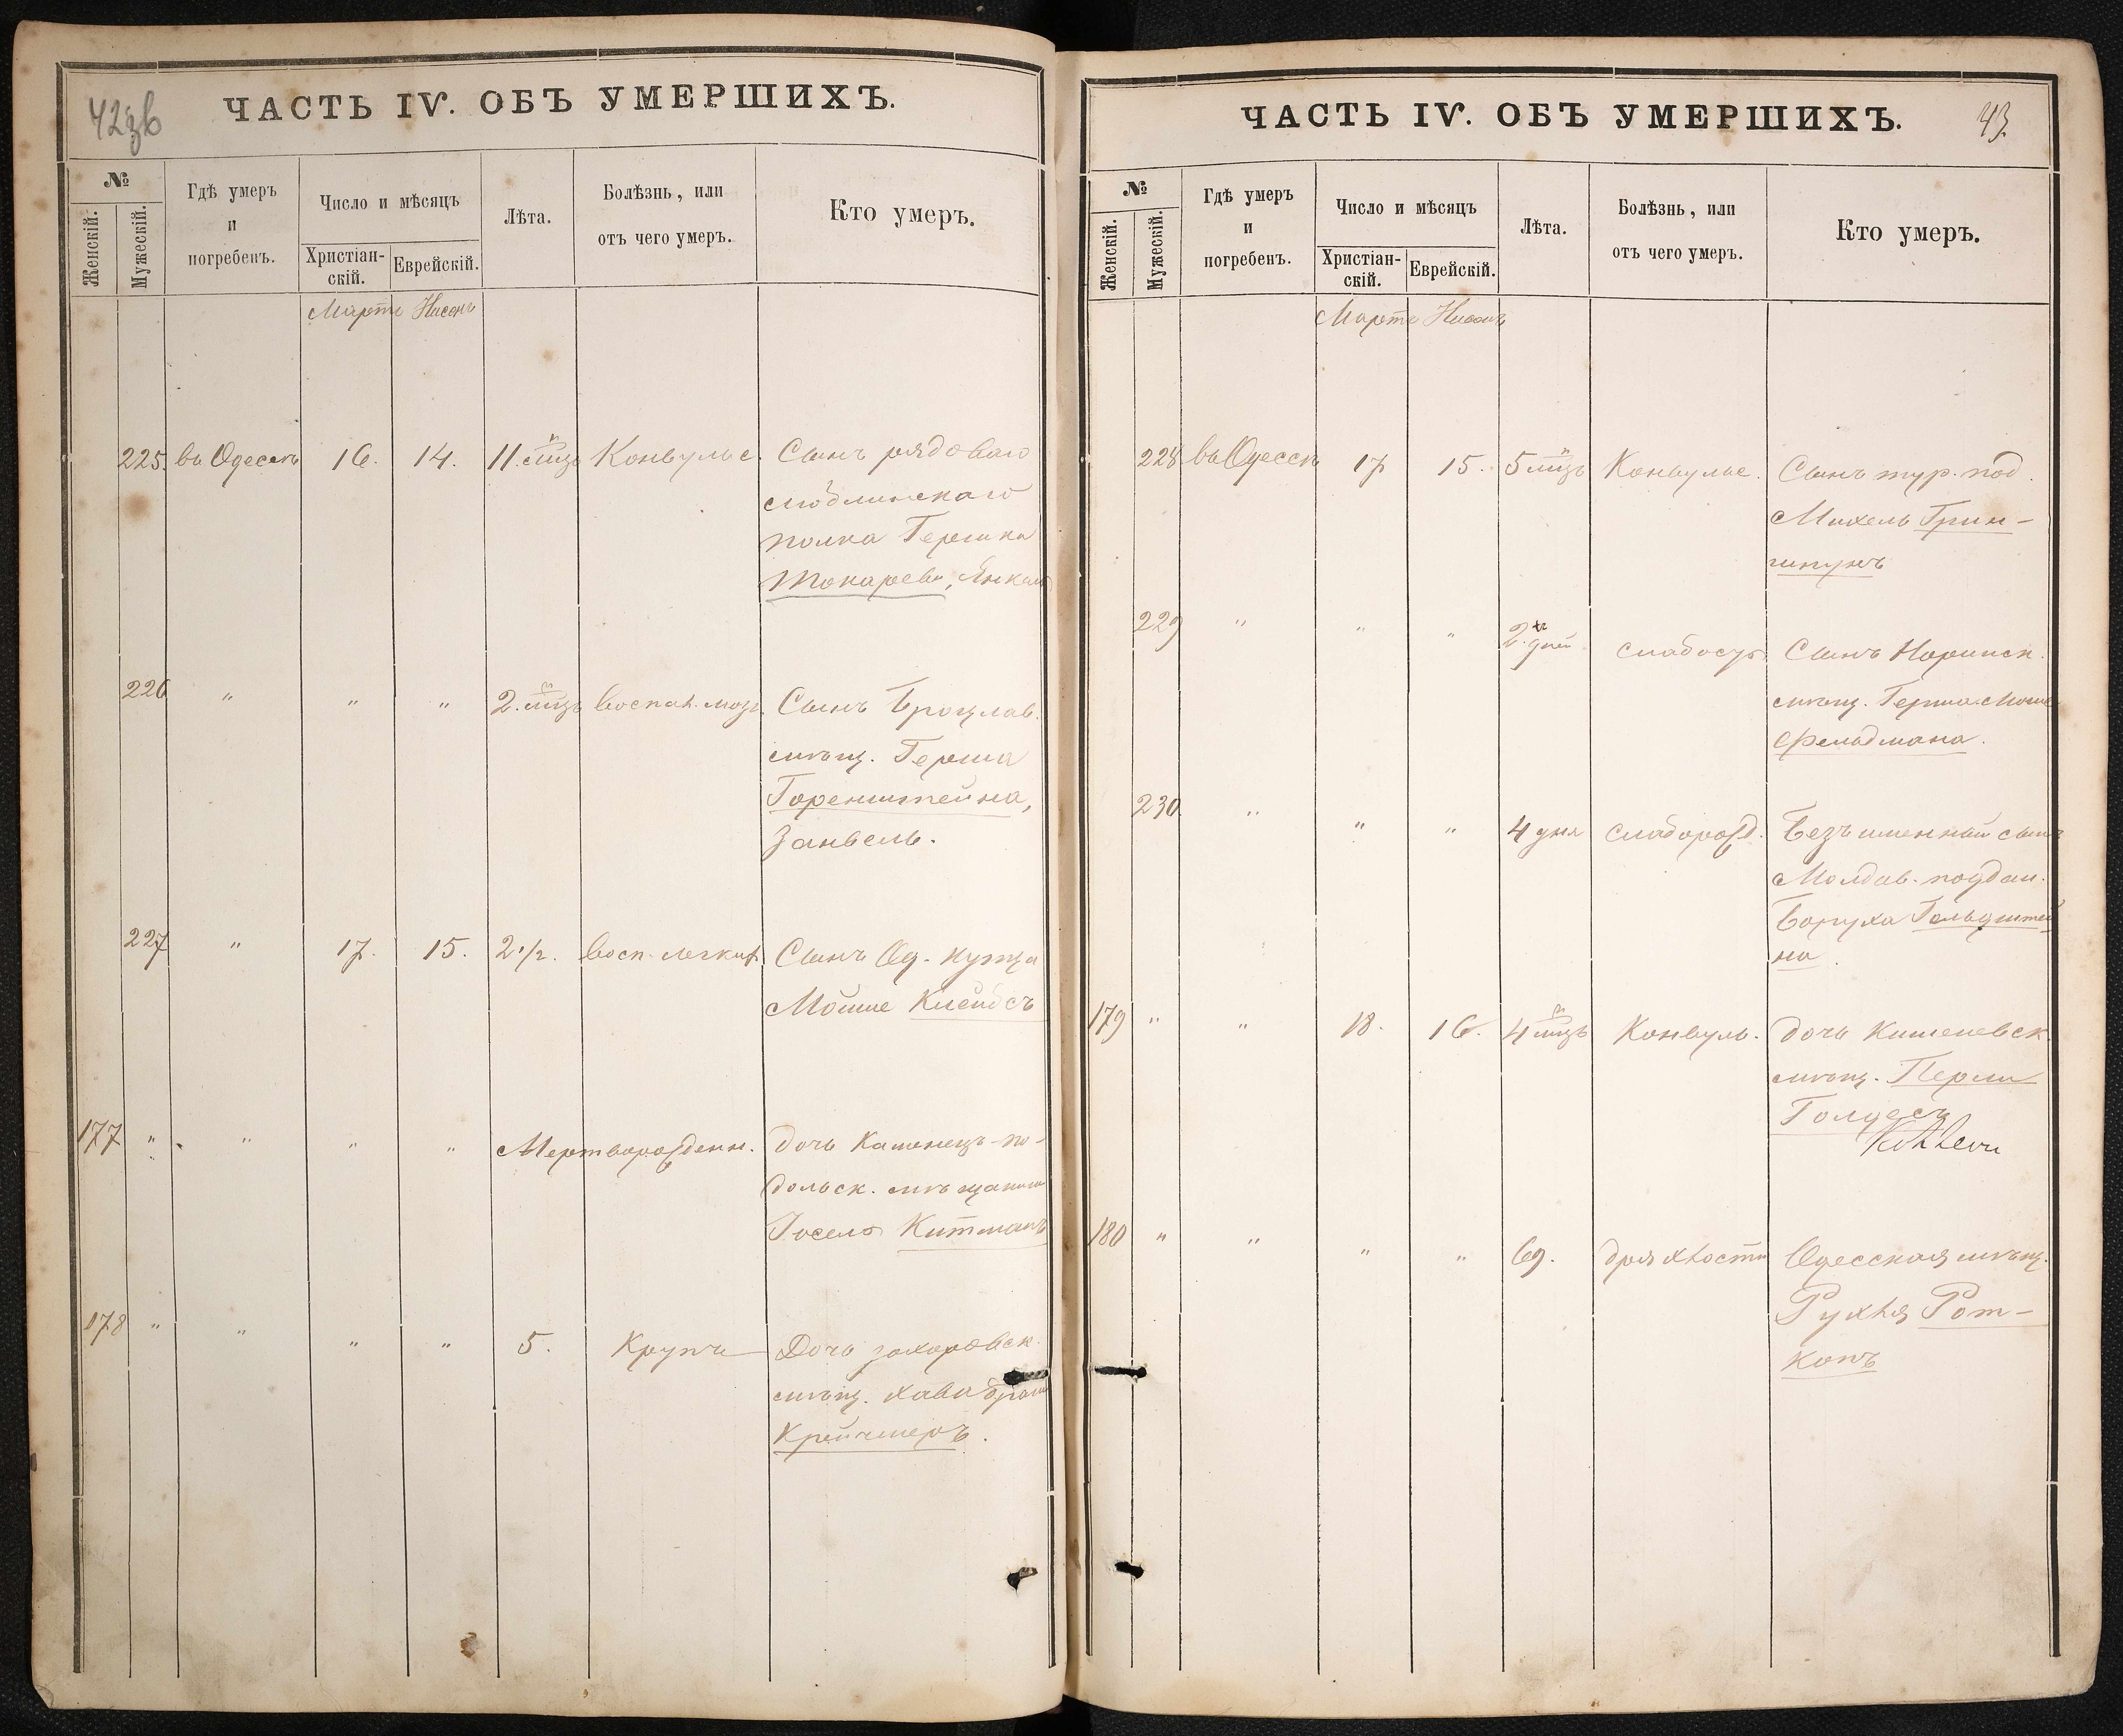 42зв
ЧАСТЬ IV. ОБЪ УМЕРШИХЪ.
№
Женскій.
Мужескій.
Гдѣ умеръ
и
погребенъ.
Число и мѣсяцъ
Христіан-
скій.
Еврейскій.
Лѣта.
Болѣзнь, или
отъ чего умеръ.
Кто умеръ.
Мартъ Нисонъ
225. въ Одессѣ 16. 14. 11. мѣц Конвульс. Сынъ рядоваго
полка Гершка
Токарева, Янкель
226 " " " 2. мѣц воспал. мозг. Сынъ Брацлав.
мѣщ. Герша
Горенштейна,
Занвель.
227 " 17. 15. 2 1/2. восп. легких Сынъ Од. купца
Мошие
177 " " " " Мертворожденн. дочь Каменецъ-по-
дольск. мѣщанина
Іосель Китманъ
178 " " " " 5. Крупъ Дочь захаровск.
мѣщ. Хава
Крейчмеръ.
43.
ЧАСТЬ IV. ОБЪ УМЕРШИХЪ.
№
Женскій.
Мужескій.
Гдѣ умеръ
и
погребенъ.
Число и мѣсяцъ
Христіан-
скій.
Еврейскій.
Лѣта.
Болѣзнь, или
отъ чего умеръ.
Кто умеръ.
Мартъ Нисонъ
228 въ Одессѣ 17 15. 5 мѣц Конвульс. Сынъ тур. под.
Михель Грин-
шпунъ
229 " " " 2. дней слабость Сынъ
мѣщ. Герша
Фельдмана.
230 " " " 4 дня слаборожд. Безъименный сынъ
Молдав. поддан.
Боруха Гольдштей
на.
179 " " 18. 16. 4 мѣц Конвуль. дочь Кишеневск.
мѣщ. Перля
Голдесъ
180 " " " " 69. дряхлости Одесская мѣщ.
Рухля Рот-
копъ